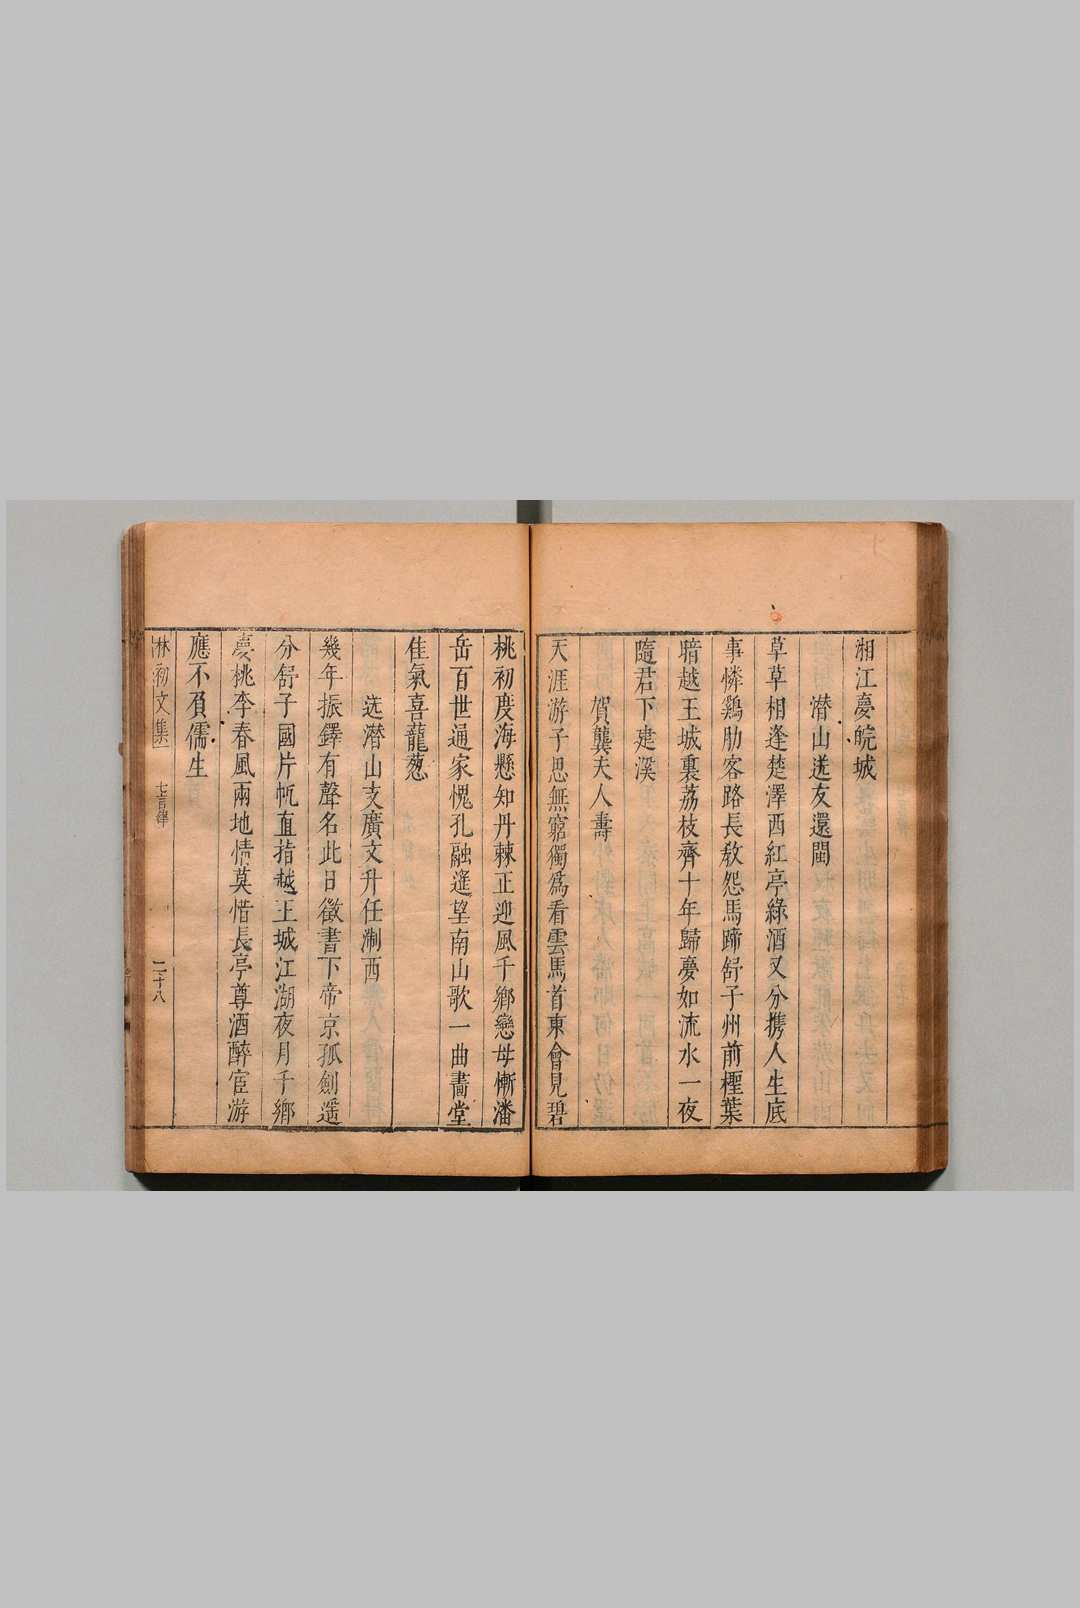 湘江夢皖城
潛山送友還閩
草草相逢楚澤西紅亭綠酒又分携人生底
事憐鷄肋客路長教怨馬蹄舒子州前樫葉
暗越王城裏荔枝齊十年歸夢如流水一夜
隨君下建溪
賀龔夫人壽
天涯游子思無窮獨爲看雲馬首東會見碧
桃初度海懸知丹棘正迎風千鄉戀母慚潘
岳百世通家愧孔融遙望南山歌一曲畵堂
佳氣喜蘢葱
送潛山支廣文升任淛西
幾年振鐸有聲名此日徵書下帝京孤劍遥
分舒子國片帆直指越王城江湖夜月千鄉
夢桃李春風兩地情莫惜長亭尊酒醉宦游
應不負儒生
林初文集
七言律
二十八